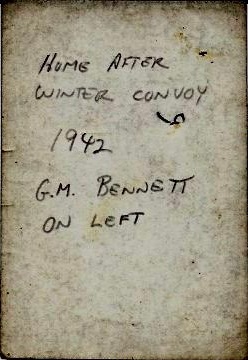 HOME AFTER
WINTER CONVOY
1942
G.M. BENNETT
ON LEFT